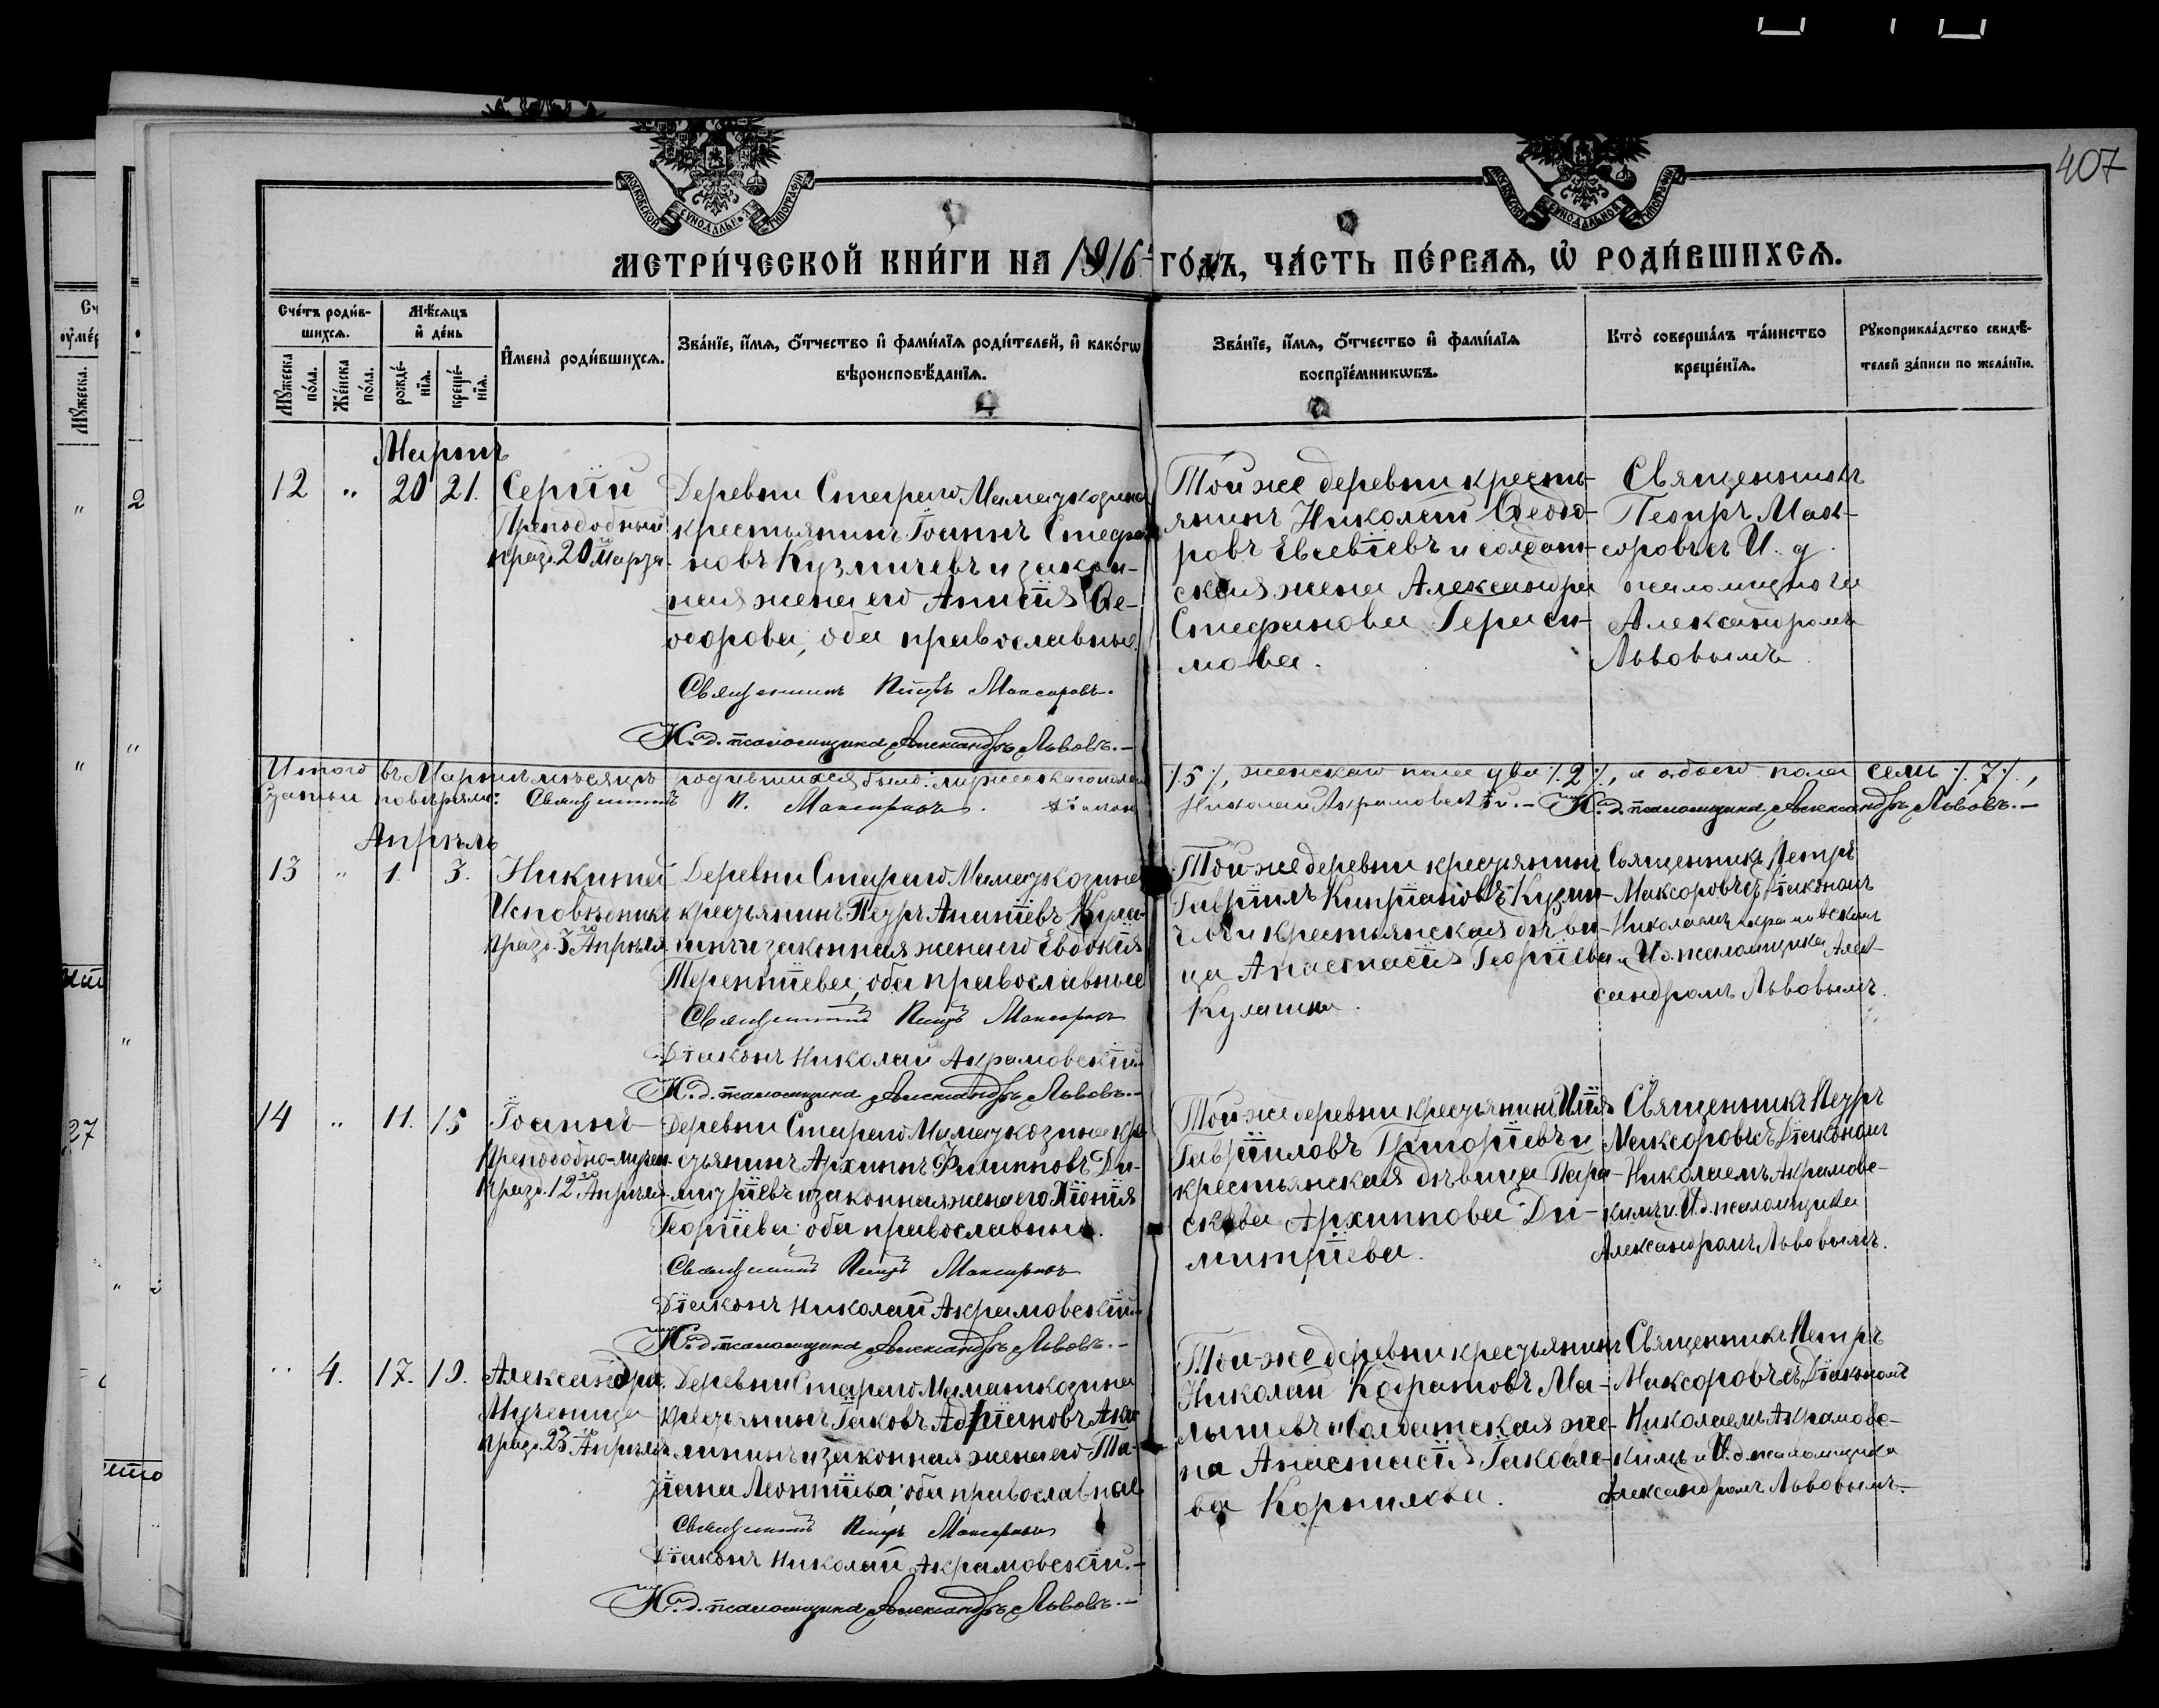 407
МОСКОВСКОЙ СѴНОДАЛЬНОЙ ТИПОГРАФИИ
МОСКОВСКОЙ СѴНОДАЛЬНОЙ ТИПОГРАФИИ
МЕТРИ́ЧЕСКОЙ КНИ́ГИ НА 1916й ГО́ДЪ, ЧА́СТЬ ПЕ́РВАѦ, Ѡ҆ РОДИ́ВШИХСѦ.
Сче́тъ роди́в-
шихсѧ.
Мꙋ́жеска по́ла.
Же́нска по́ла.
Мѣ́сѧцъ
и҆ де́нь
рожде́-
нїѧ.
креще́-
нїѧ.
И҆мена̀ роди́вшихсѧ.
Зва́нїе, и҆́мѧ, ѻ҆́тчество и҆ фами́лїѧ роди́телей, и҆ како́гѡ
вѣроисповѣ́данїѧ.
Зва́нїе, и҆́мѧ, ѻ҆́тчество и҆ фами́лїѧ
воспрїе́мникѡвъ.
Кто̀ соверша́лъ та́инство
креще́нїѧ.
Рꙋкоприкла́дство свидѣ́-
телей за́писи по жела́нїю.
Мартъ
12 „ 20 21.
Сергій
Преподобный
празд. 20го Марта
Деревни Стараго Маматкозина
крестьянинъ Іоаннъ Стефа-
новъ Кузмичевъ и закон-
ная жена его Анисія Ѳе-
одорова, оба православные.
Священникъ Петръ Максоровъ.
И. д. псаломщика Александръ Львовъ.-
Той же деревни кресть-
янинъ Николай Ѳеодо-
ровъ Евсевіевъ и солдат-
ская жена Александра
Стефанова Гераси-
мова.
Священникъ
Петръ Мак-
соровъ съ И. д.
псаломщика
Александромъ
Львовымъ
Итого въ Мартѣ мѣсяцѣ родившихся было: мужескаго пола ./.5./., женскаго пола два ./.2./., а обоего пола семь ./.7./.,
повѣряли: Священникъ П. Максоровъ. Діаконъ Николай Акрамовскій.- И. д. псаломщика Александръ Львовъ.-
Апрѣль
13 „ 1. 3.
Никита
Исповѣдникъ
празд. 3го Апрѣля.
Деревни Стараго Маматкозина
крестьянинъ Петръ Кула-
шинъ и законная жена его Евдокія
Терентіева, оба православные
Священникъ Петръ Максоровъ
Діаконъ Николай Акрамовскій.
И. д. псаломщика Александръ Львовъ.-
Той-же деревни крестьянинъ
Гавріилъ Кипріановъ Кузми-
чевъ и крестьянская дѣви-
ца Анастасія Георгіева
Кулашина.
Священникъ Петръ
Максоровъ съ Діакономъ
Николаемъ Акрамовскимъ
и И. д. псаломщика Алек-
сандромъ Львовымъ.
14 „ 11. 15
Іоаннъ
Преподобно-мучен.
празд. 12го Апрѣля.
Деревни Стараго Маматкозина кре-
стьянинъ Архиппъ Филипповъ Ди-
митріевъ и законная жена его Хіонія
Георгіева, оба православные.
Священникъ Петръ Максоровъ
Діаконъ Николай Акрамовскій.
И. д. псаломщика Александръ Львовъ.-
Той же деревни крестьянинъ Илія
Гавріиловъ Григоріевъ и
крестьянская дѣвица Пара-
скева Архиппова Ди-
митріева.
Священникъ Петръ
Максоровъ съ Діакономъ
Николаемъ Акрамовс-
кимъ и И. д. псаломщика
Александромъ Львовымъ.
„ 4. 17. 19.
Александра
Мученица
празд. 23го Апрѣля
Деревни Стараго Маматкозина
крестьянинъ Іаковъ Адріановъ Аки-
лининъ и законная жена его Та-
тіана Леонтіева, оба православные
Священникъ Петръ Максоровъ
Діаконъ Николай Акрамовскій.-
И. д. псаломщика Александръ Львовъ.-
Той-же деревни крестьянинъ
Николай Кодратовъ Ма-
лышевъ и солдатская же-
на Анастасія Іаковле-
ва Корнилова.
Священникъ Петръ
Максоровъ съ Діакономъ
Николаемъ Акрамовс-
кимъ и И. д. псаломщика
Александромъ Львовымъ.-